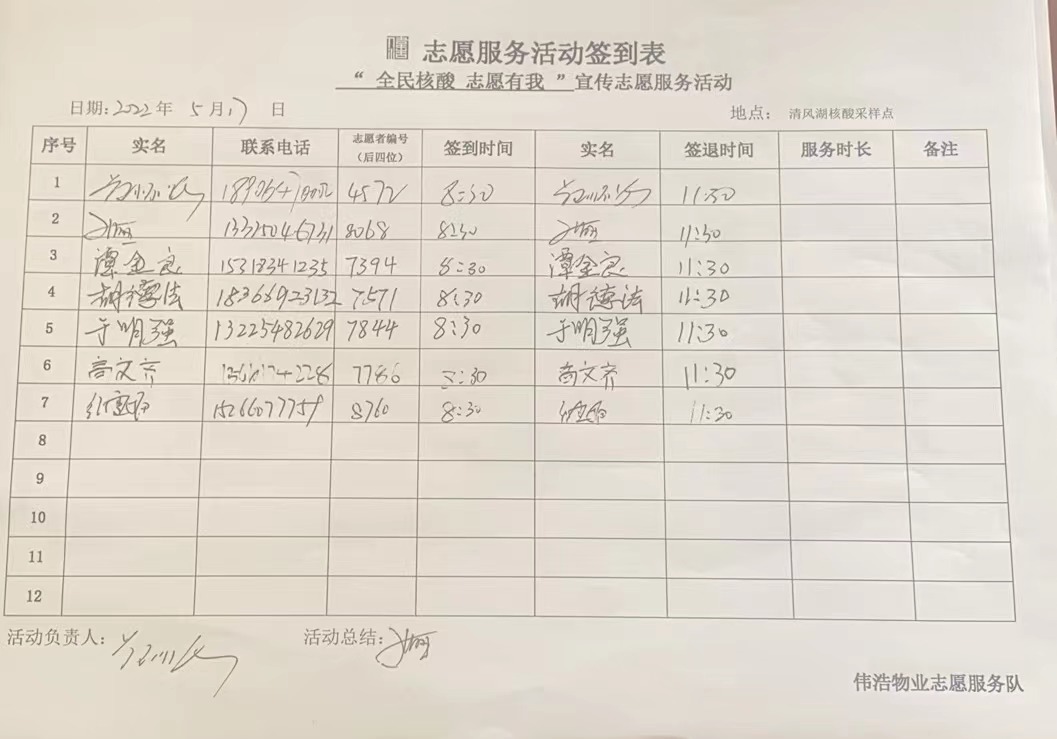 志愿服务活动签到表
“ 全民核酸 志愿有我 ”宣传志愿服务活动
日期:2022年 5月17日 地点： 清风湖核酸采样点
序号 实名 联系电话 志愿者编号（后四位） 签到时间 实名 签退时间 服务时长 备注
1 4572 8:30 11:30
2 13325046731 8068 8:30 11:30
3 谭金良 15318341235 7394 8:30 谭金良 11:30
4 胡德法 18366923132 7571 8:30 胡德法 11:30
5 于明强 13225482629 7844 8:30 于明强 11:30
6 高文齐 7786 8:30 高文齐 11:30
7 15266077759 8760 8:30 11:30
8
9
10
11
12
活动负责人： 活动总结：
伟浩物业志愿服务队